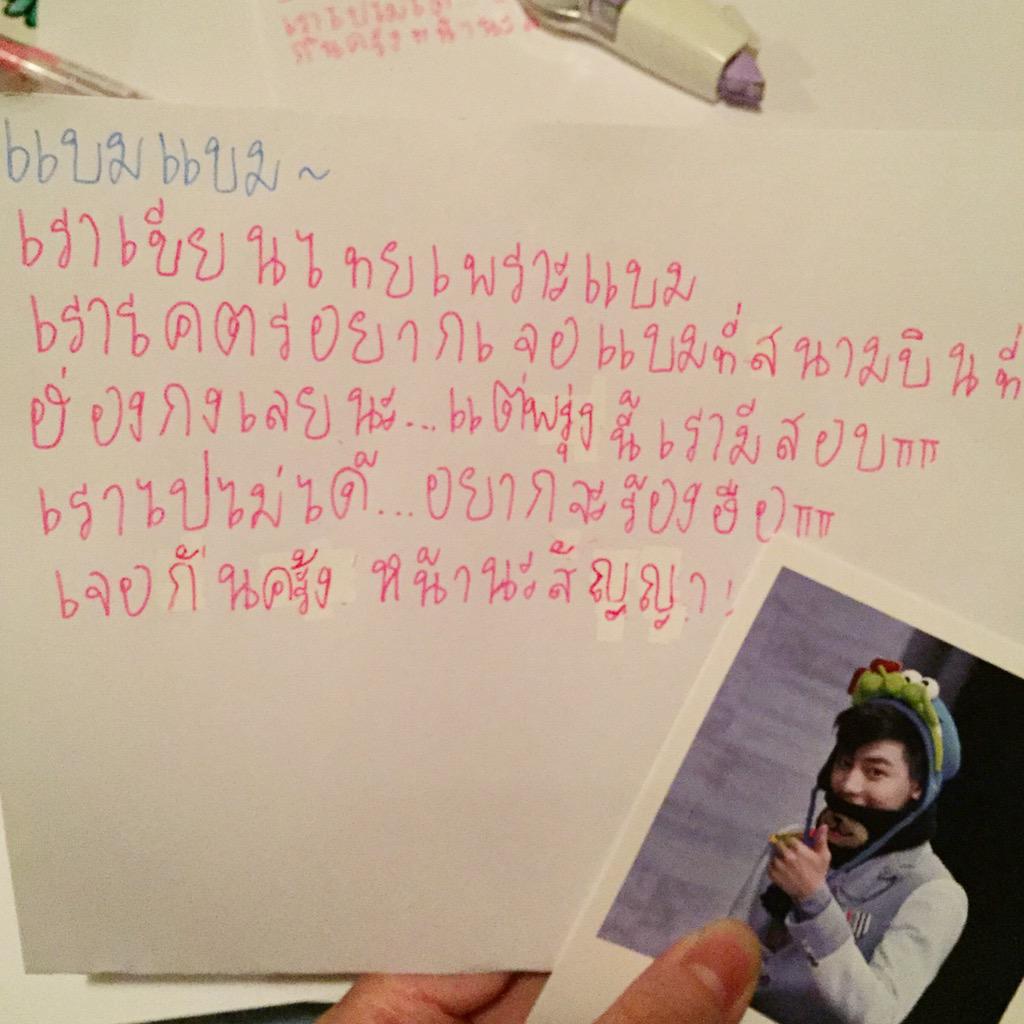 เราไปไม่ได้
กันครั้งหน้านะ
แบมแบม~
เราเขียนไทยเพราะแบม
เราโคตรอยากเจอแบมที่สนามบินที่
ฮ่องกงเลยนะ...แต่พรุ่งนี้เรามีสอบTTTT
เราไปไม่ได้...อยากจะร้องฮือTTTT
เจอกันครั้งหน้านะสัญญา!